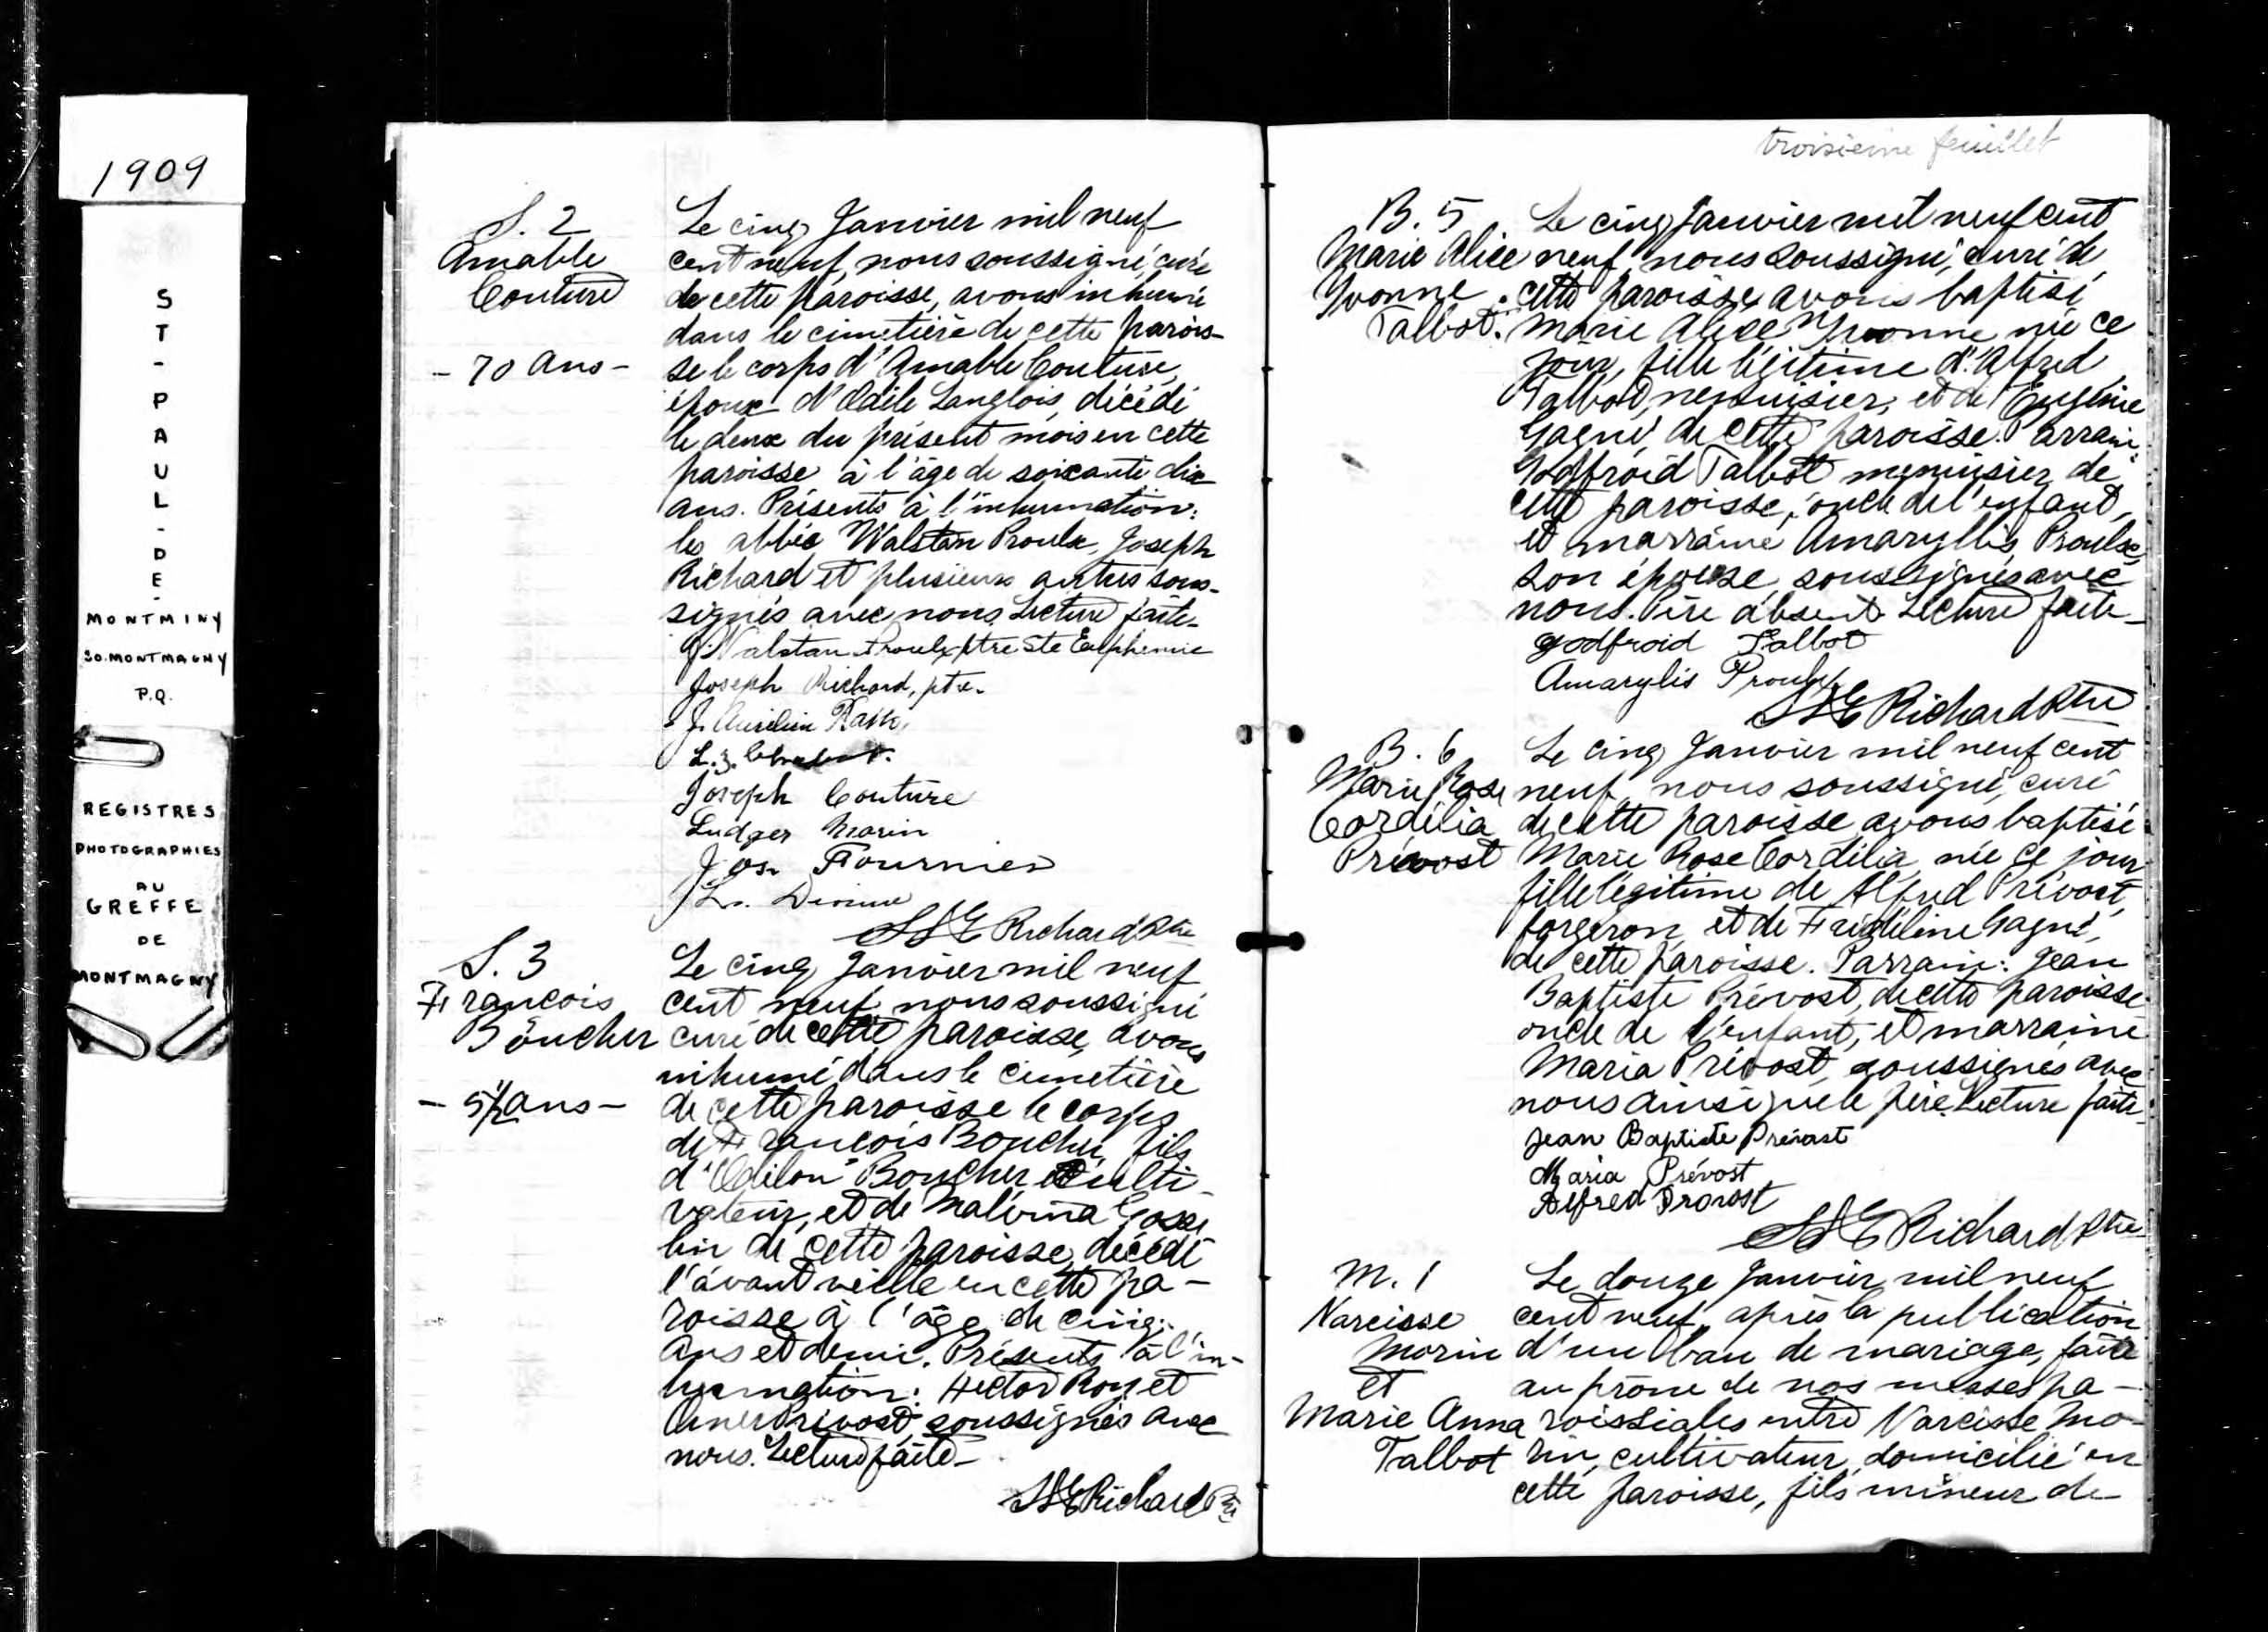 1909
ST-PAUL-DE-
MONTMINY
CO. MONTMAGNY
P.Q.
REGISTRES
PHOTOGRAPHIES
AU
GREFFE
DE
MONTMAGNY
S. 2
Amable
Couture
- 70 ans -
Le cinq Janvier mil neuf
cent neuf, nous soussigné, curé
de cette paroisse, avons inhumé
dans le cimetière de cette parois-
se le corps d'Amable Couture,
époux d'Odile Langlois, décédé
le deux du présent mois en cette
paroisse à l'âge de soixante dix
ans. Présents à l'inhumation:
les abbés Walstan Proulx, Joseph
Richard et plusieurs autres sous-
signés avec nous. Lecture faite-
J. Walstan Proulx ptre Ste Euphémie
Joseph Richard, ptre.
J. Aurélien
L. J.
Joseph Couture
Ludger Morin
Jos. Fournier
Richard Ptre
S. 3
François
Boucher
- 5 1/2 ans -
Le cinq Janvier mil neuf
cent neuf, nous soussigné
curé de cette paroisse, avons
inhumé dans le cimetière
de cette paroisse le corps
de François Boucher, fils
d'Odilon Boucher culti-
vateur, et de Malvina Gosse
lin de cette paroisse, décédé
l'avant veille en cette pa-
roisse à l'âge de cinq
ans et demi. Présents à l'in-
humation: Hector Roy et
Prévost soussignés avec
nous. Lecture faite-
Richard Ptre
troisième feuillet
B. 5
Marie Alice
Yvonne
Talbot.
Le cinq Janvier mil neuf cent
neuf, nous soussigné, curé de
cette paroisse, avons baptisé
Marie Alice Yvonne née ce
jour, fille légitime d'Alfred
Talbot, menuisier, et de Eugénie
Gagné de cette paroisse. Parrain:
Godfroid Talbot menuisier de
cette paroisse, oncle de l'enfant,
et marraine Amaryllis Proulx,
son épouse, soussignés avec
nous. Père absent. Lecture faite-
Godfroid Talbot
Amarylis Proulx
Richard Ptre
B. 6
Marie Rose
Cordélia
Prévost
Le cinq Janvier mil neuf cent
neuf, nous soussigné, curé
de cette paroisse avons baptisé
Marie Rose Cordélia née ce jour
fille légitime de Alfred Prévost,
forgeron, et de Fridéline Gagné,
de cette paroisse. Parrain: Jean
Baptiste Prévost, de cette paroisse
oncle de l'enfant, et marraine
Maria Prévost, soussignés avec
nous ainsi que le père. Lecture faite-
Jean Baptiste Prévost
Maria Prévost
Alfred Provost
Richard Ptre
M. 1
Narcisse
Morin
et
Marie Anna
Talbot
Le douze Janvier mil neuf
cent neuf, après la publication
d'un ban de mariage, faite
au prône de nos messes pa-
roissiales entre Narcisse Mo-
rin, cultivateur, domicilié en
cette paroisse, fils mineur de